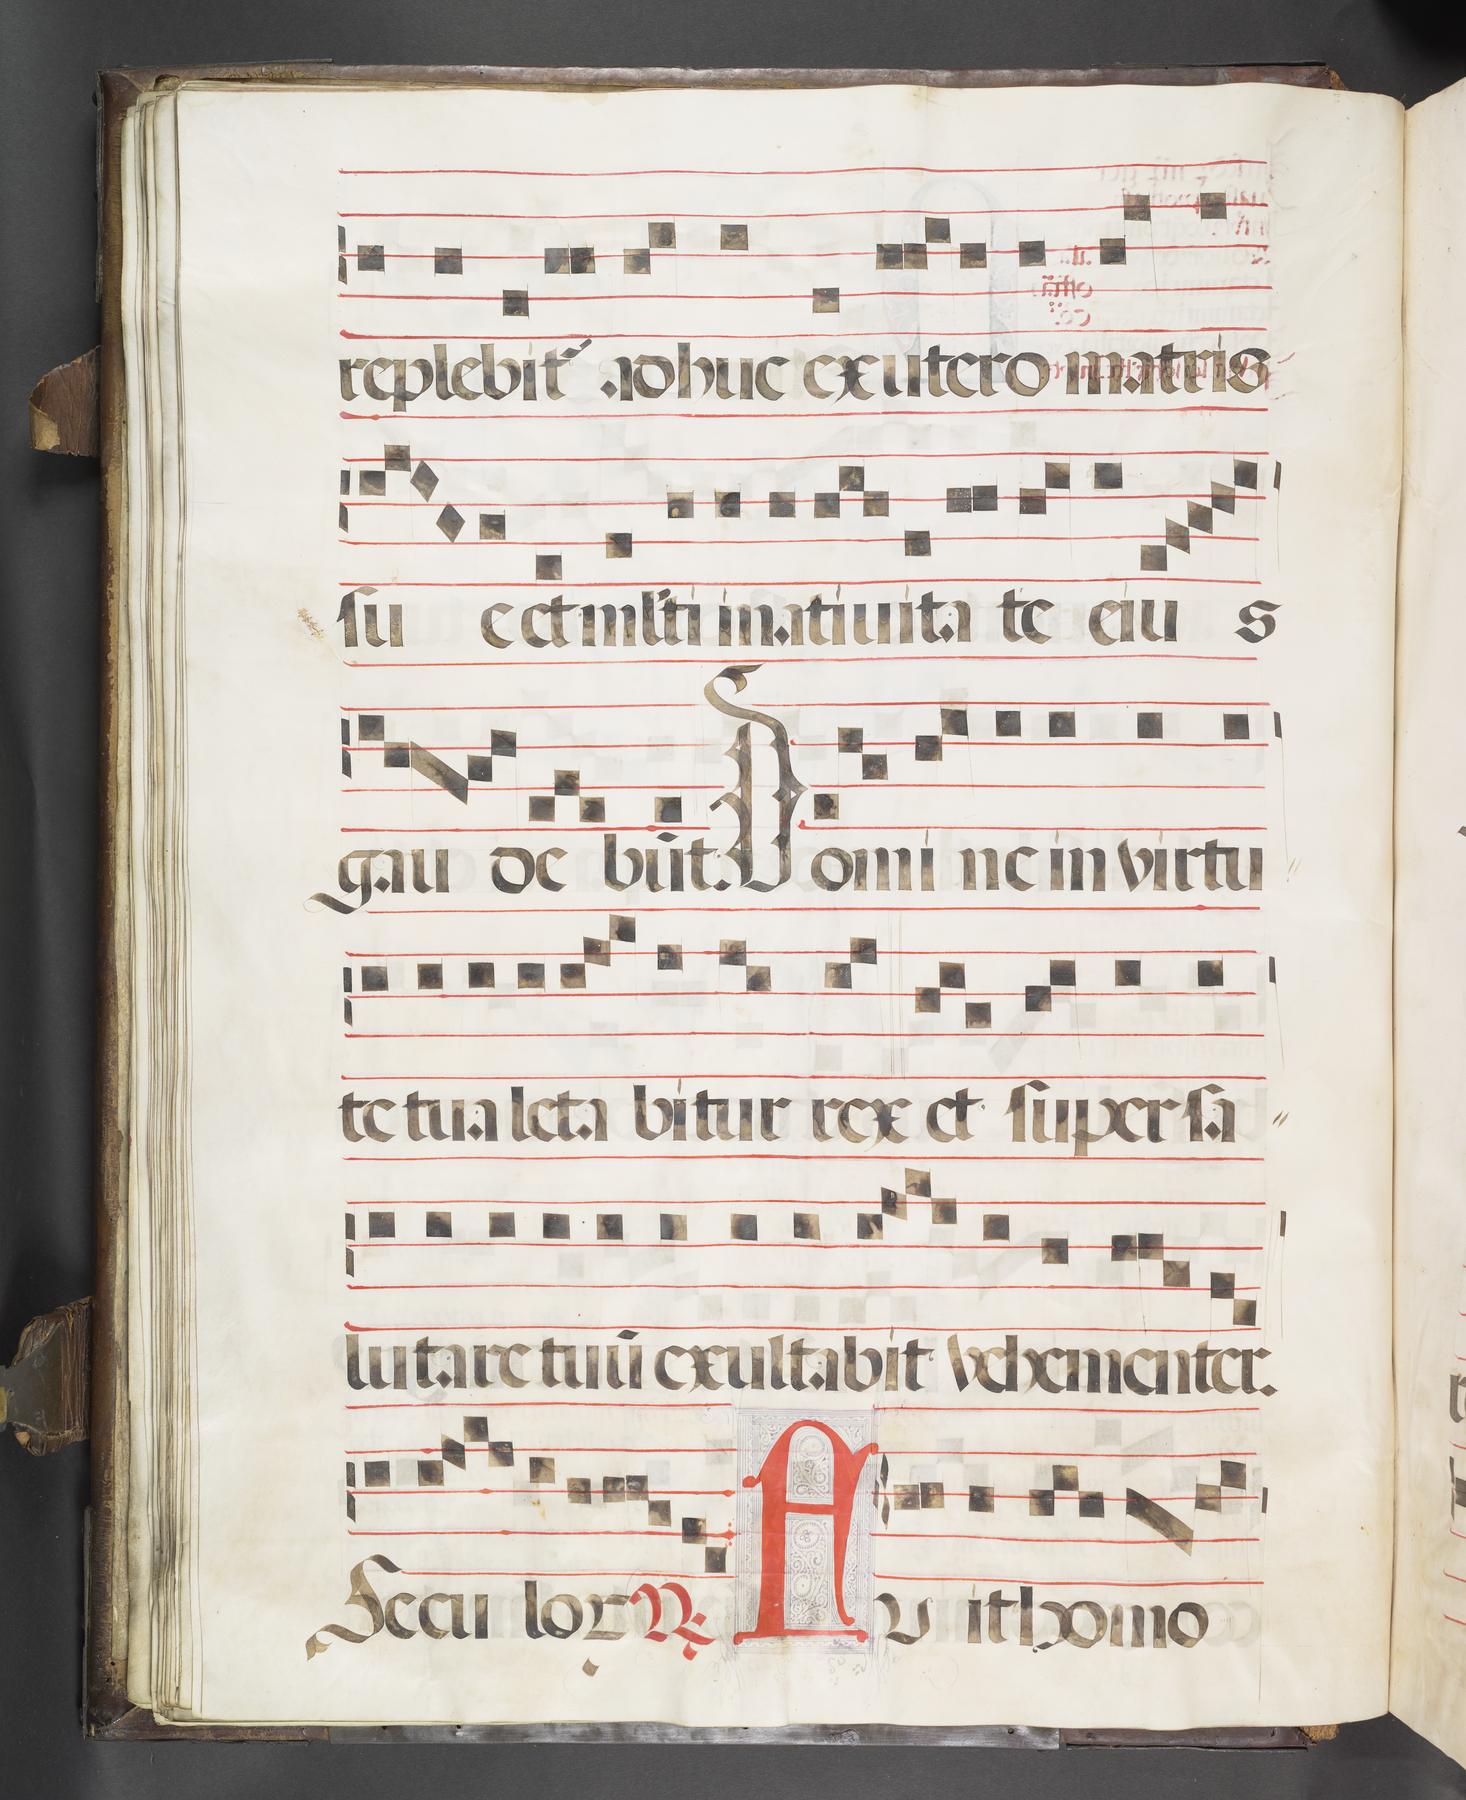 replebit᷑ adhuc ex utero matris
su e et ml̃ti in natiuita te eiu s
gau de bũt. Domi ne in virtu
te tua leta bitur rex et super sa
lutare tuũ exultabit vehementer.
Secu loꝝ ℟ A v it homo